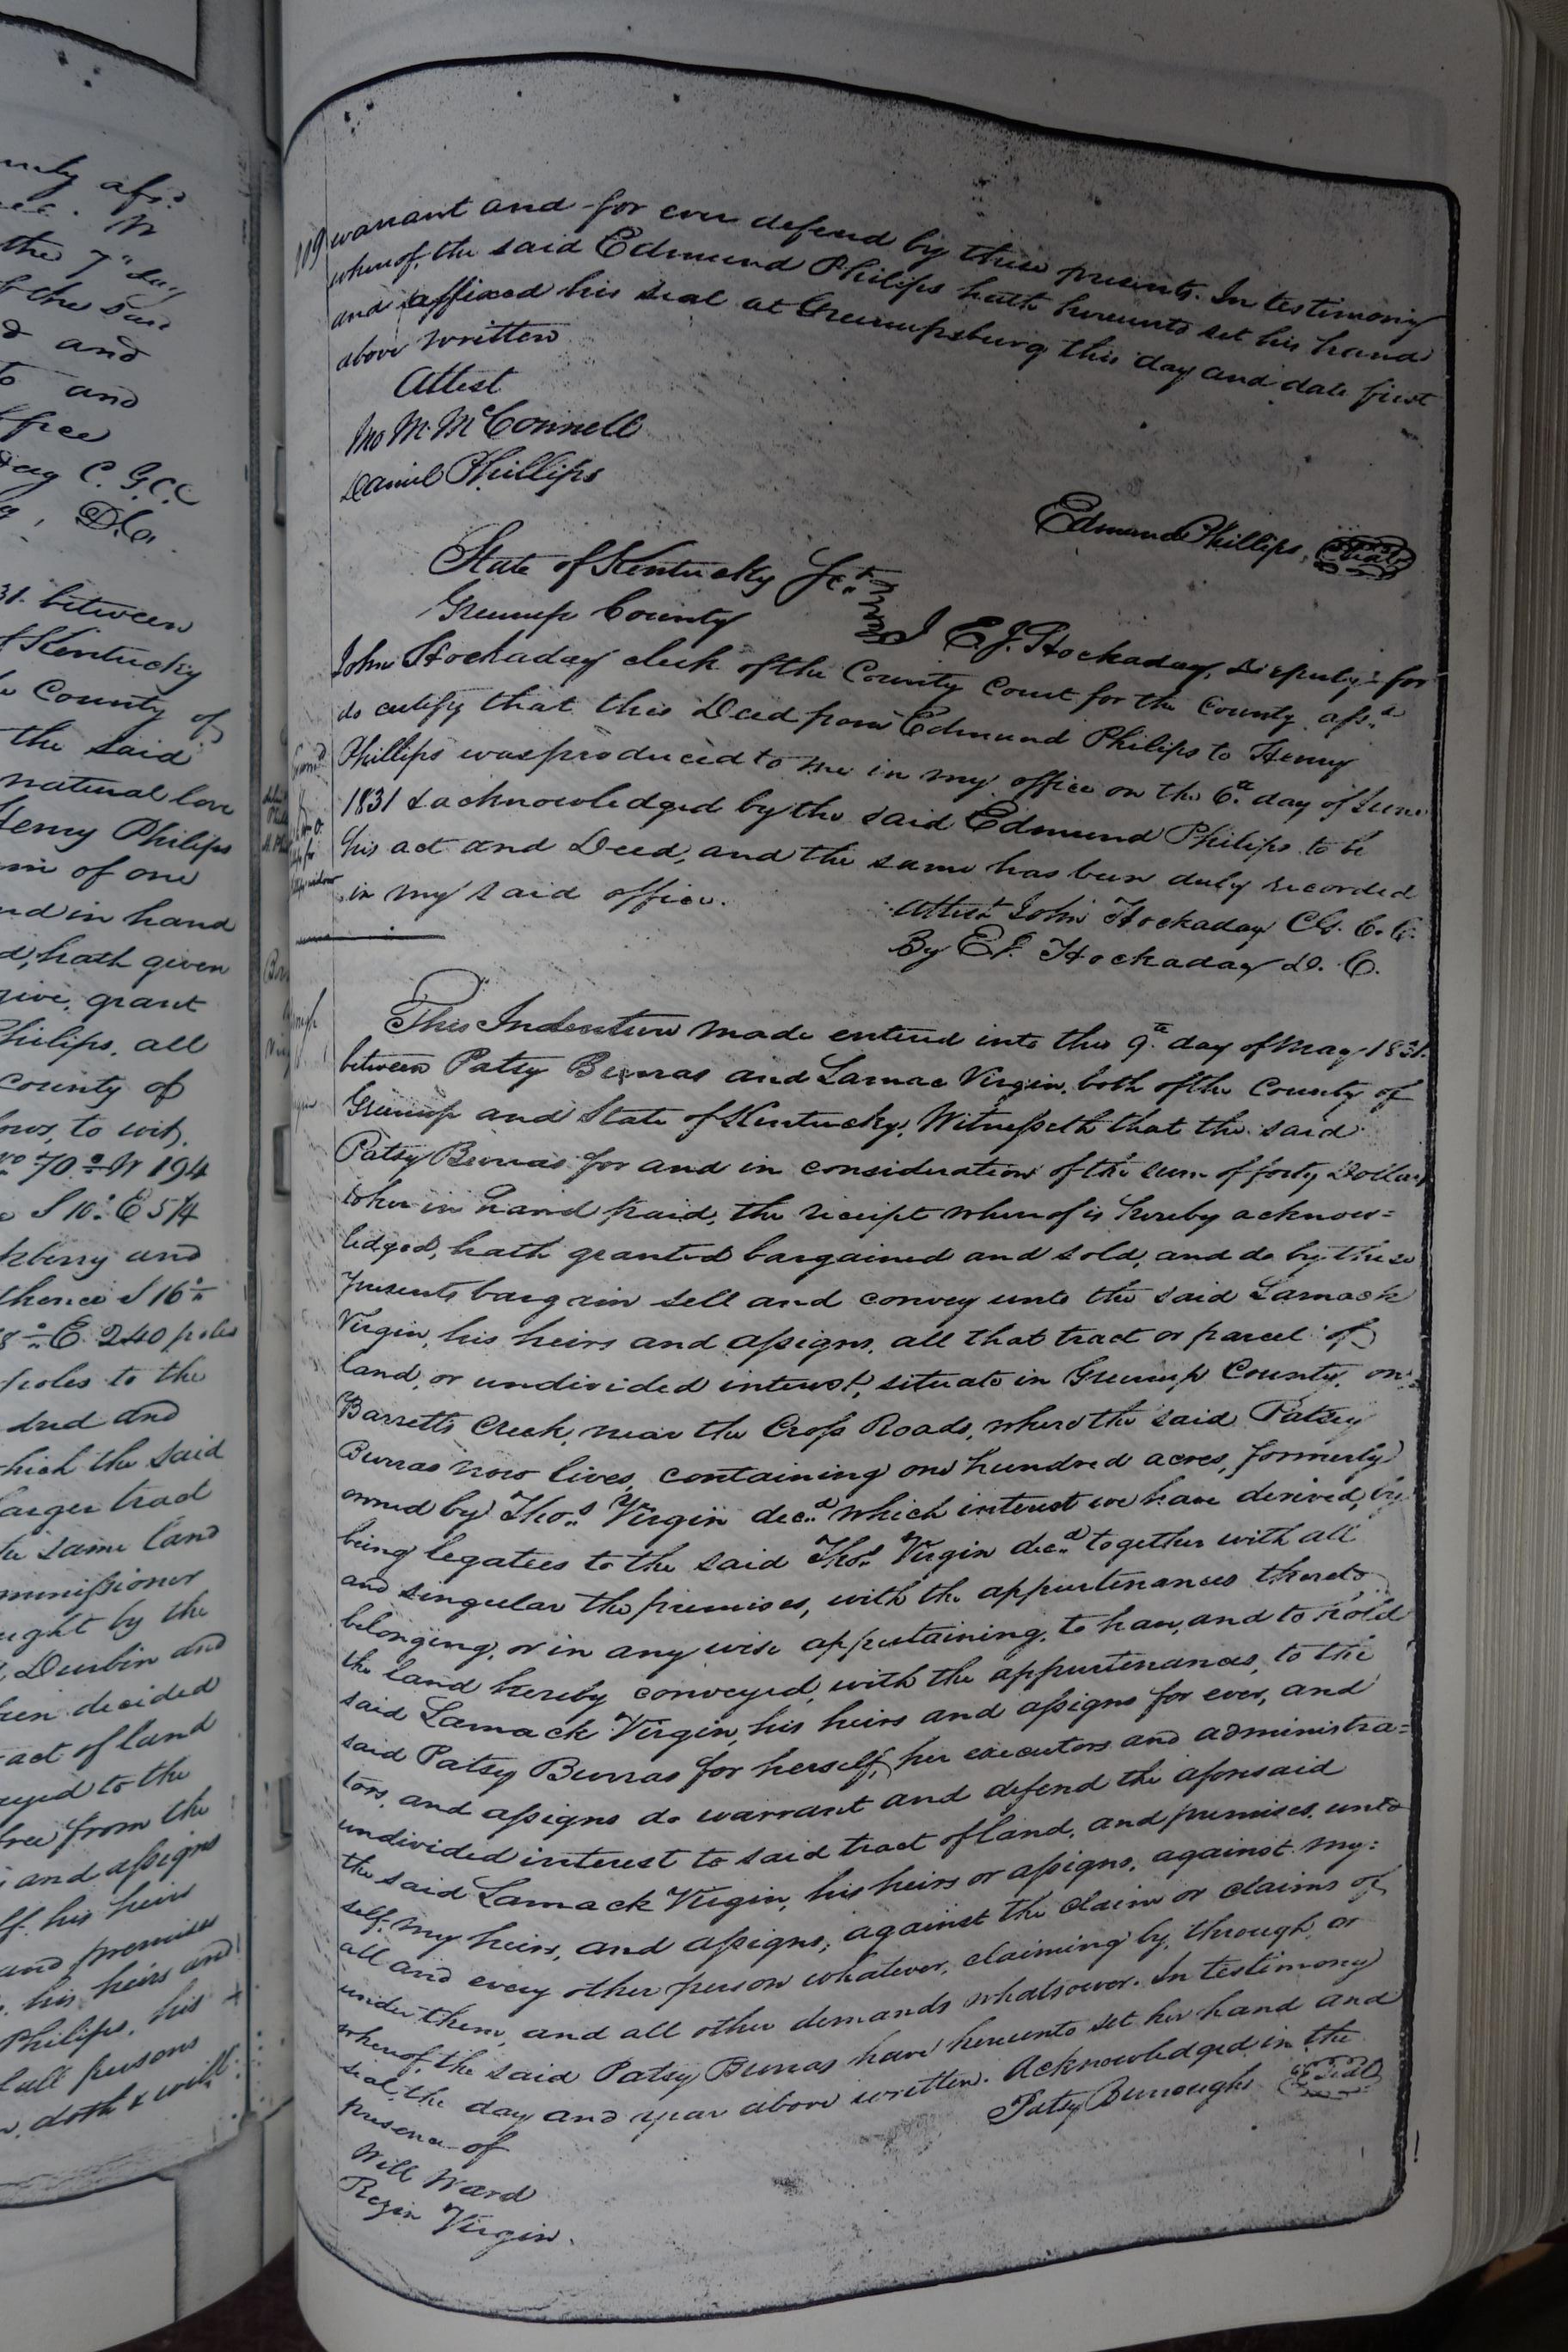 mly afsd
the 7th day
of the said
d and
to and
ffice
day C. G.C.C
D.C.
31. between
of Kentucky
County of
the said
natural love
Henry Philips
um of one
nd in hand
d, hath given
give, grant
Philips, all
County of
ows, to wit,
70° W 194
S 10° E 54
kberry and
thence S 16°
8° E. 240 poles
poles to the
dred and
which the said
larger trad
the same land
mmissioner
ught by the
Durbin and
been decided
act of land
eyed to the
free from the
and assigns
lf. his heirs
and premises
his heirs and
Philips, his
all persons
doth & will
109 warrant and for ever defend by these presents. In testimony
whereof, the said Edmund Philips hath hereunto set his hand
and affixed his seal at Greenupsburg this day and date first
above written
Attest
Jno M. McConnell
Daniel Phillips
Edmund Phillips, Seal
State of Kentucky Sct.
Greenup County
I E.J. Hockaday, Deputy for
John Hockaday clerk of the County Court for the County afsd
do certify that this Deed from Edmund Philips to Henry
Phillips was produced to me in my office on the 6th day of June
1831 & acknowledged by the said Edmund Philips to be
his act and Deed, and the same has been duly recorded
in my said office.
Attest John Hockaday Cl. G. C. C.
By E.J. Hockaday D. C.
This Indenture made entered into this 9th day of May 1831.
between Patsy Burras and Lamac Virgin, both of the County of
Greenup and State of Kentucky, Witnesseth that the said
Patsy Burras for and in consideration of the sum of forty Dollars
to her in hand paid, the receipt whereof is hereby acknow=
ledged, hath granted bargained and sold, and do by these
presents bargain sell and convey unto the said Lamack
Virgin, his heirs and assigns, all that tract or parcel of
land, or undivided interest, situate in Greenup County, on
Barretts Creek, near the Cross Roads, where the said Patsey
Burras now lives, containing one hundred acres, formerly
owned by Thos. Virgin decd. which interest we have derived, by
being legatees to the said Thos. Virgin decd. together with all
and singular the premises, with the appurtenances thereto
belonging, or in any wise appertaining, to have, and to hold
the land hereby conveyed, with the appurtenances, to the
said Lamack Virgin, his heirs and assigns for ever, and
said Patsy Burras for herself, her executors and administra=
tors, and assigns do warrant and defend the aforesaid
undivided interest to said tract of land, and premises, unto
the said Lamack Virgin, his heirs or assigns, against my:
self, my heirs, and assigns, against the claim or claims of
all and every other person whatever, claiming by, through, or
under them, and all other demands whatsoever. In testimony
whereof, the said Patsy Burras have hereunto set her hand and
seal, the day and year above written. Acknowledged in the
presence of
Patsy Burroughs Seal
Will Ward
Rezin Virgin.